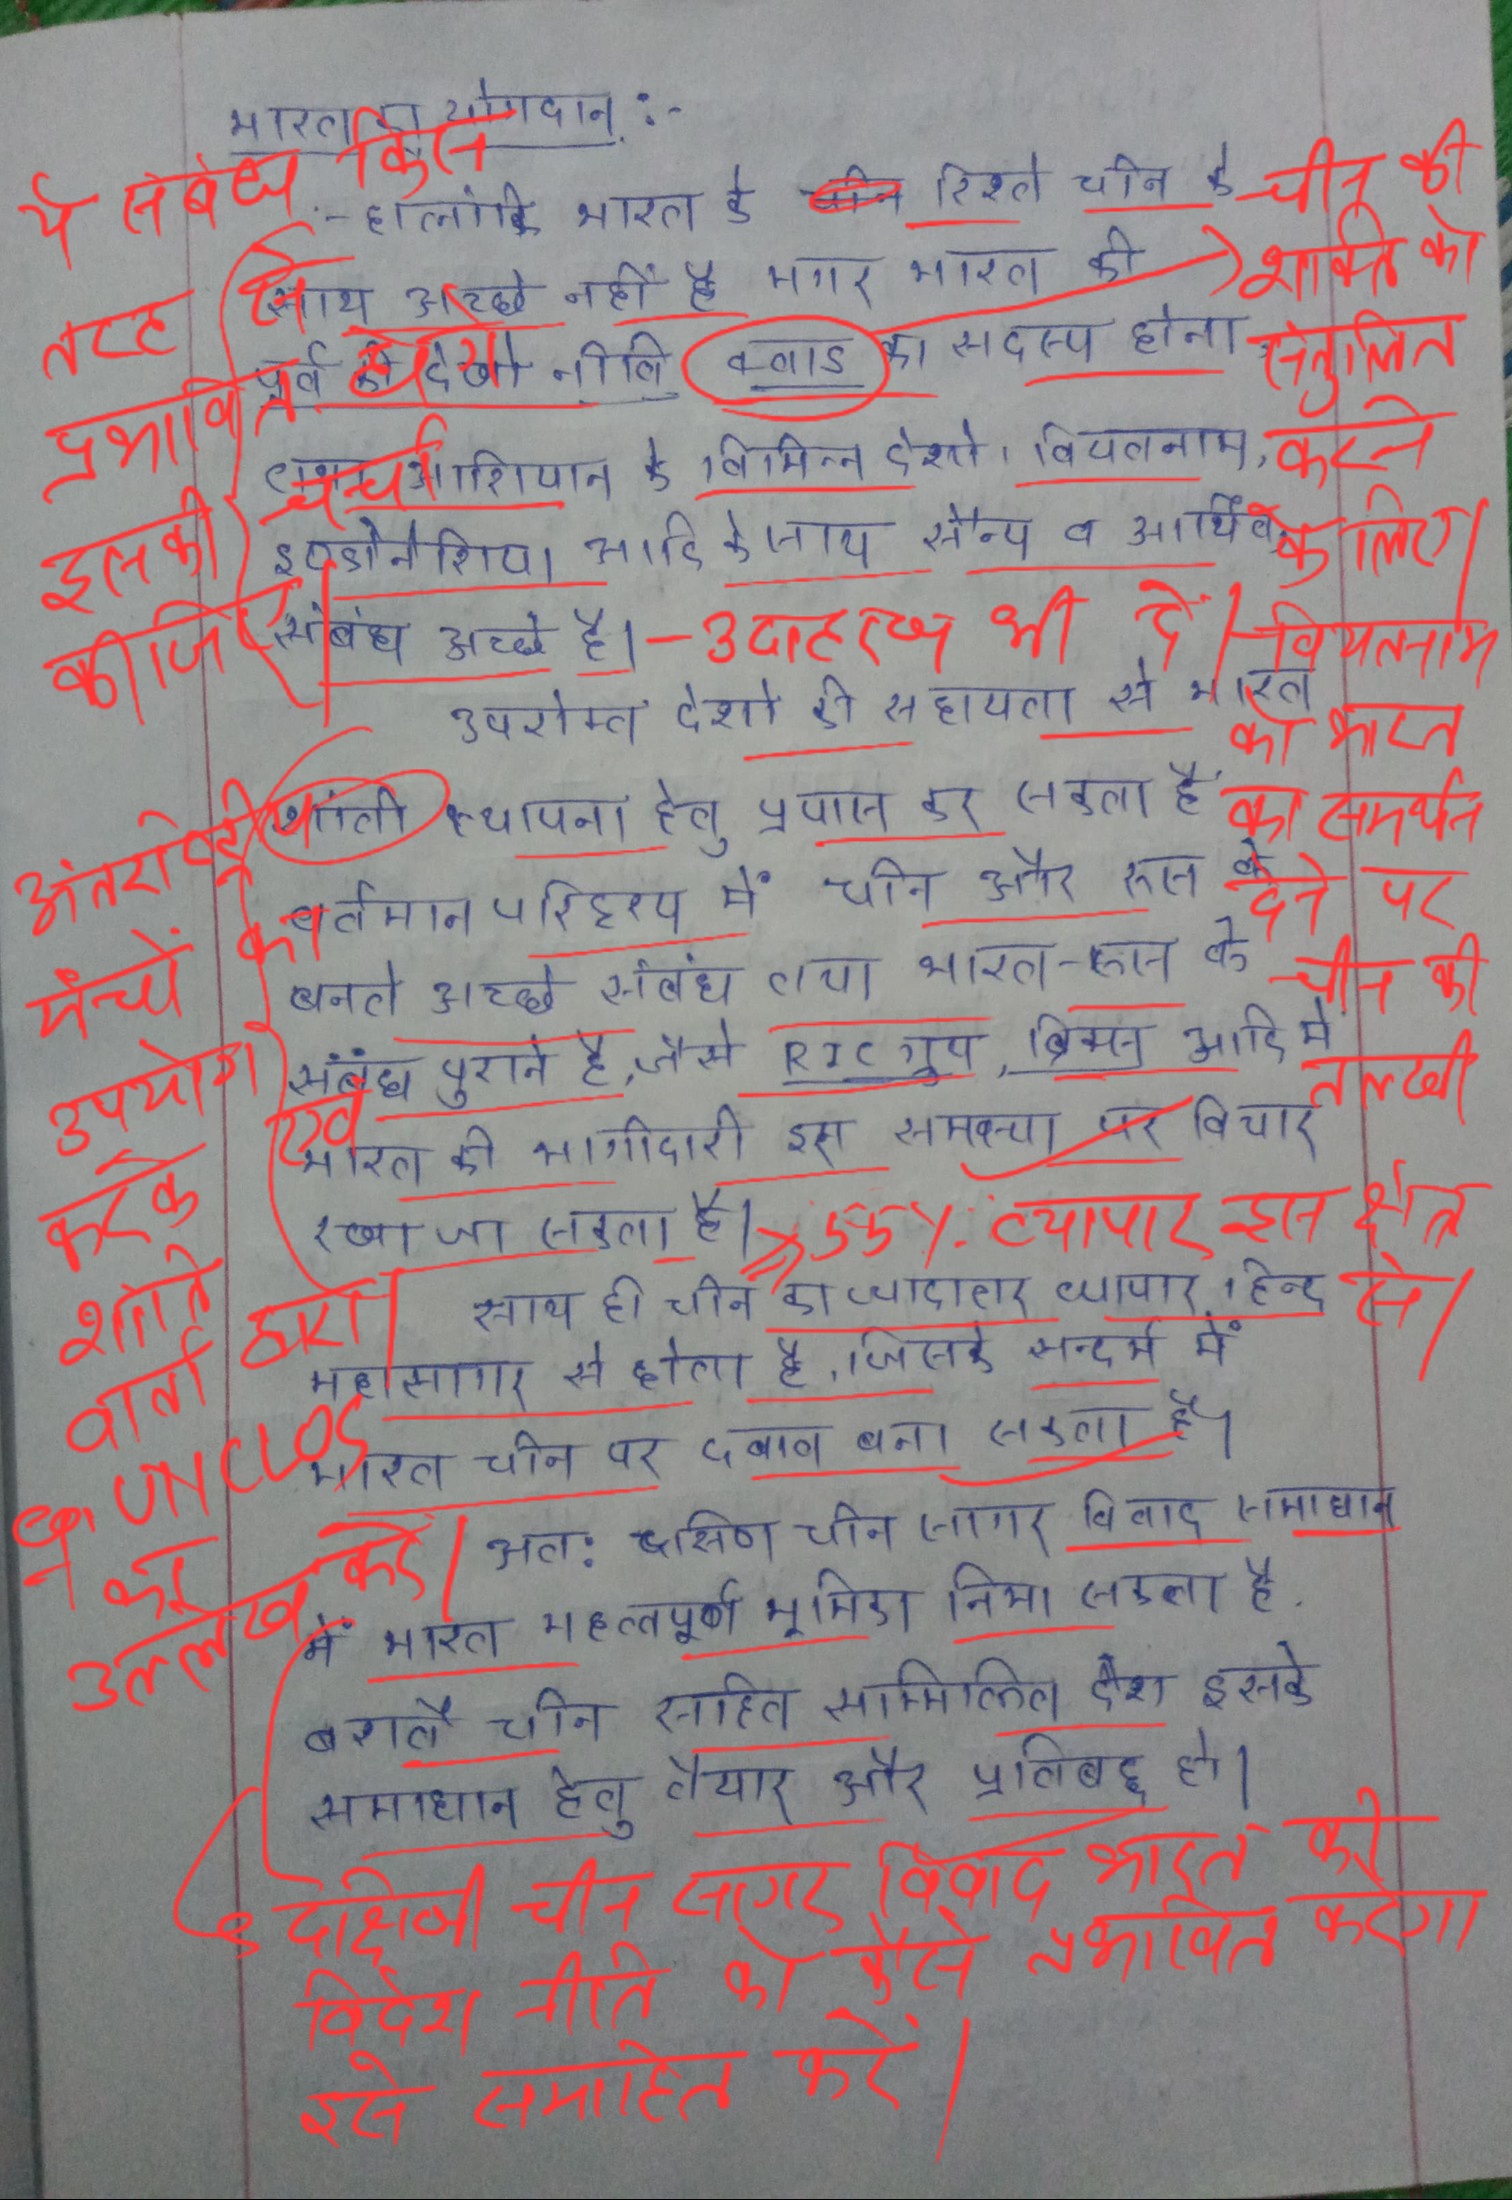 भारत का योगदान :-
:- हालांकि भारत के चीन रिश्ते चीन के
साथ अच्छे नहीं है मगर भारत की
पूर्व की देखो नीति क्वाड का सदस्य होना
तथा आशियान के विभिन्न देशो। वियतनाम,
इण्डोनेशिया आदि के साथ सैन्य व आर्थिक
संबंध अच्छे है।
उपरोक्त देशो की सहायता से भारत
शांती स्थापना हेतु प्रयास कर सकता है
वर्तमान परिदृश्य में चीन और रूस के
बनते अच्छे संबंध तथा भारत-रूस के
संबंध पुराने है, जैसे RIC ग्रुप, ब्रिक्स आदि मे
भारत की भागीदारी इस समस्या पर विचार
रखा जा सकता है।
साथ ही चीन का ज्यादातर व्यापार हिन्द
महासागर से होता है, जिसके सन्दर्भ में
भारत चीन पर दबाव बना सकता है।
अतः दक्षिण चीन सागर विवाद समाधान
में भारत महत्वपूर्ण भूमिका निभा सकता है.
बशर्ते चीन सहित सम्मिलित देश इसके
समाधान हेतु तैयार और प्रतिबद्ध हो।
ये संबंध किस
तरह से
प्रभावित करेगा
इसकी चर्चा
कीजिए।
चीन की
शक्ति को
संतुलित
करने
के लिए।
- उदाहरण भी दें।
- वियतनाम
को भारत
का समर्थन
देने पर
चीन की
तल्खी
अंतर्राष्ट्रीय
मंचों का
उपयोग
करके एवं
शांति
वार्ता द्वारा।
55% व्यापार इस क्षेत्र
से।
UNCLOS
का
उल्लेख करें।
दक्षिणी चीन सागर विवाद भारत की
विदेश नीति को कैसे प्रभावित करेगा
इसे समाहित करें।